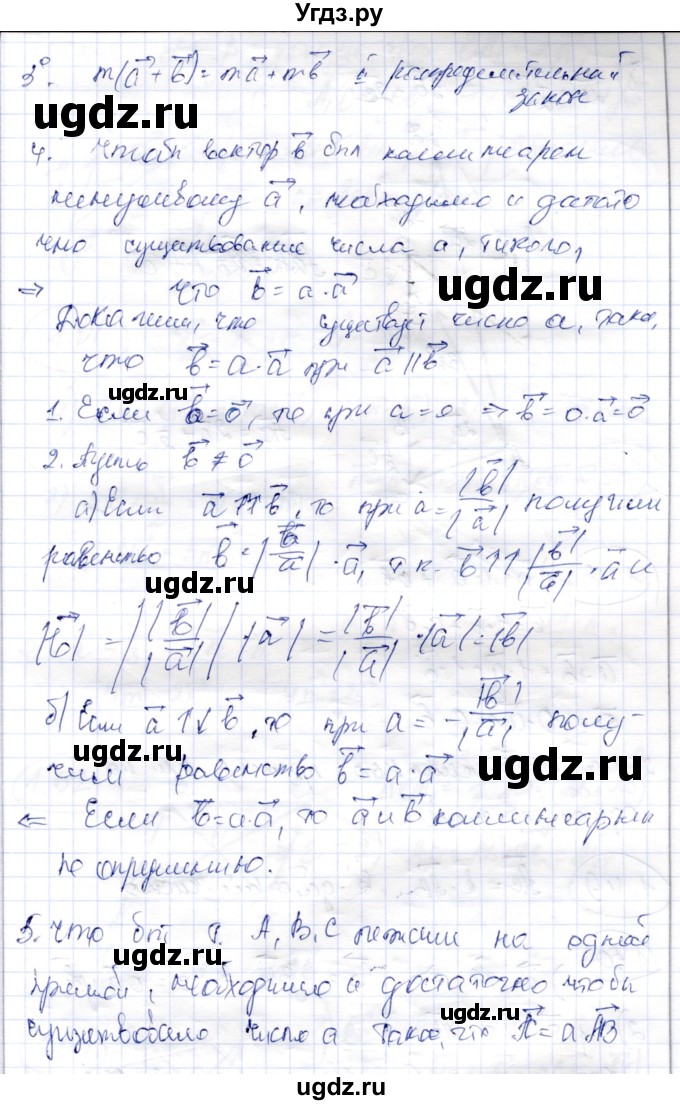 Угдз.ру
3°. m(a⃗ + b⃗) = ma⃗ + mb⃗ распределительный
закон
ugdz.ru
4. Чтобы вектор b⃗ был коллинеарен
ненулевому a⃗, необходимо и достато
чно существование числа a, такого,
⇒ что b⃗ = a·a⃗
ugdz.ru
Докажем, что существует число a, такое,
что b⃗ = a·a⃗ при a⃗ || b⃗
ugdz.ru
1. Если b⃗ = 0⃗, то при a = 0 ⇒ b⃗ = 0·a⃗ = 0⃗
2. Пусть b⃗ ≠ 0⃗
ugdz.ru
а) Если a⃗ ↑↑ b⃗, то при a = |b⃗|/|a⃗| получим
равенство b⃗ = |b⃗/a⃗| · a⃗, т.к. b⃗ ↑↑ |b⃗|/|a⃗| · a⃗ и
ugdz.ru
|b⃗| = ||b⃗|/|a⃗|| · |a⃗| = |b⃗|/|a⃗| · |a⃗| = |b⃗|
ugdz.ru
б) Если a⃗ ↑↓ b⃗, то при a = -|b⃗|/|a⃗| полу-
чим равенство b⃗ = a·a⃗
ugdz.ru
⇐ Если b⃗ = a·a⃗, то a⃗ и b⃗ коллинеарны
по определению.
ugdz.ru
5. Что бы т. A, B, C лежали на одной
ugdz.ru
прямой, необходимо и достаточно чтобы
существовало число a такое, что A⃗C = a A⃗B
ugdz.ru
ugdz.ru